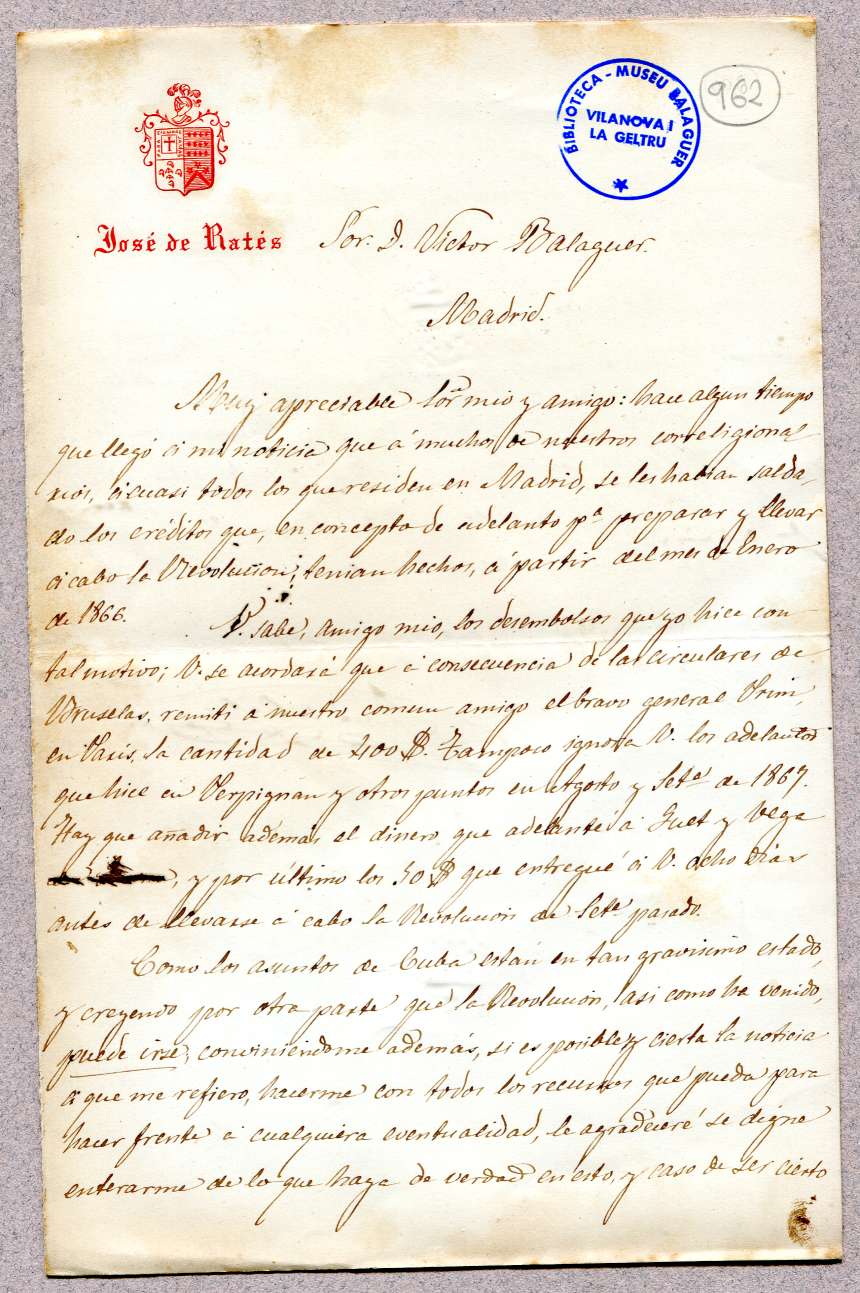 BIBLIOTECA - MUSEU BALAGUER
VILANOVA I
LA GELTRU
962
José de Ratés
Sor. D. Victor Balaguer.
Madrid.
Muy apreciable Sor mio y amigo: hace algun tiempo
que llegó á mi noticia que á muchos de nuestros correligiona-
rios, á cuasi todos los que residen en Madrid, se les habian salda-
do los créditos que, en concepto de adelanto pa. preparar y llevar
á cabo la Revolucion, tenian hechos, á partir del mes de Enero
de 1866.
V. sabe, amigo mio, los desembolsos que yo hice con
tal motivo; V. se acordará que á consecuencia de las circulares de
Bruselas, remiti á nuestro comun amigo el bravo general Prim,
en Paris, la cantidad de 400 $. Tampoco ignora V. los adelantos
que hice en Perpignan y otros puntos en Agosto y Sete. de 1867.
Hay que añadir además el dinero que adelanté á Guet y Vega
, y por último los 50 $ que entregué á V. ocho dias
antes de llevarse á cabo la Revolucion de Sete. pasado.
Como los asuntos de Cuba están en tan gravisimo estado,
y creyendo por otra parte que la Revolucion, asi como ha venido,
puede irse, conviniéndome además, si es posible y cierta la noticia
á que me refiero, hacerme con todos los recursos que pueda para
hacer frente á cualquiera eventualidad, le agradeceré se digne
enterarme de lo que haya de verdad en esto, y caso de ser cierto